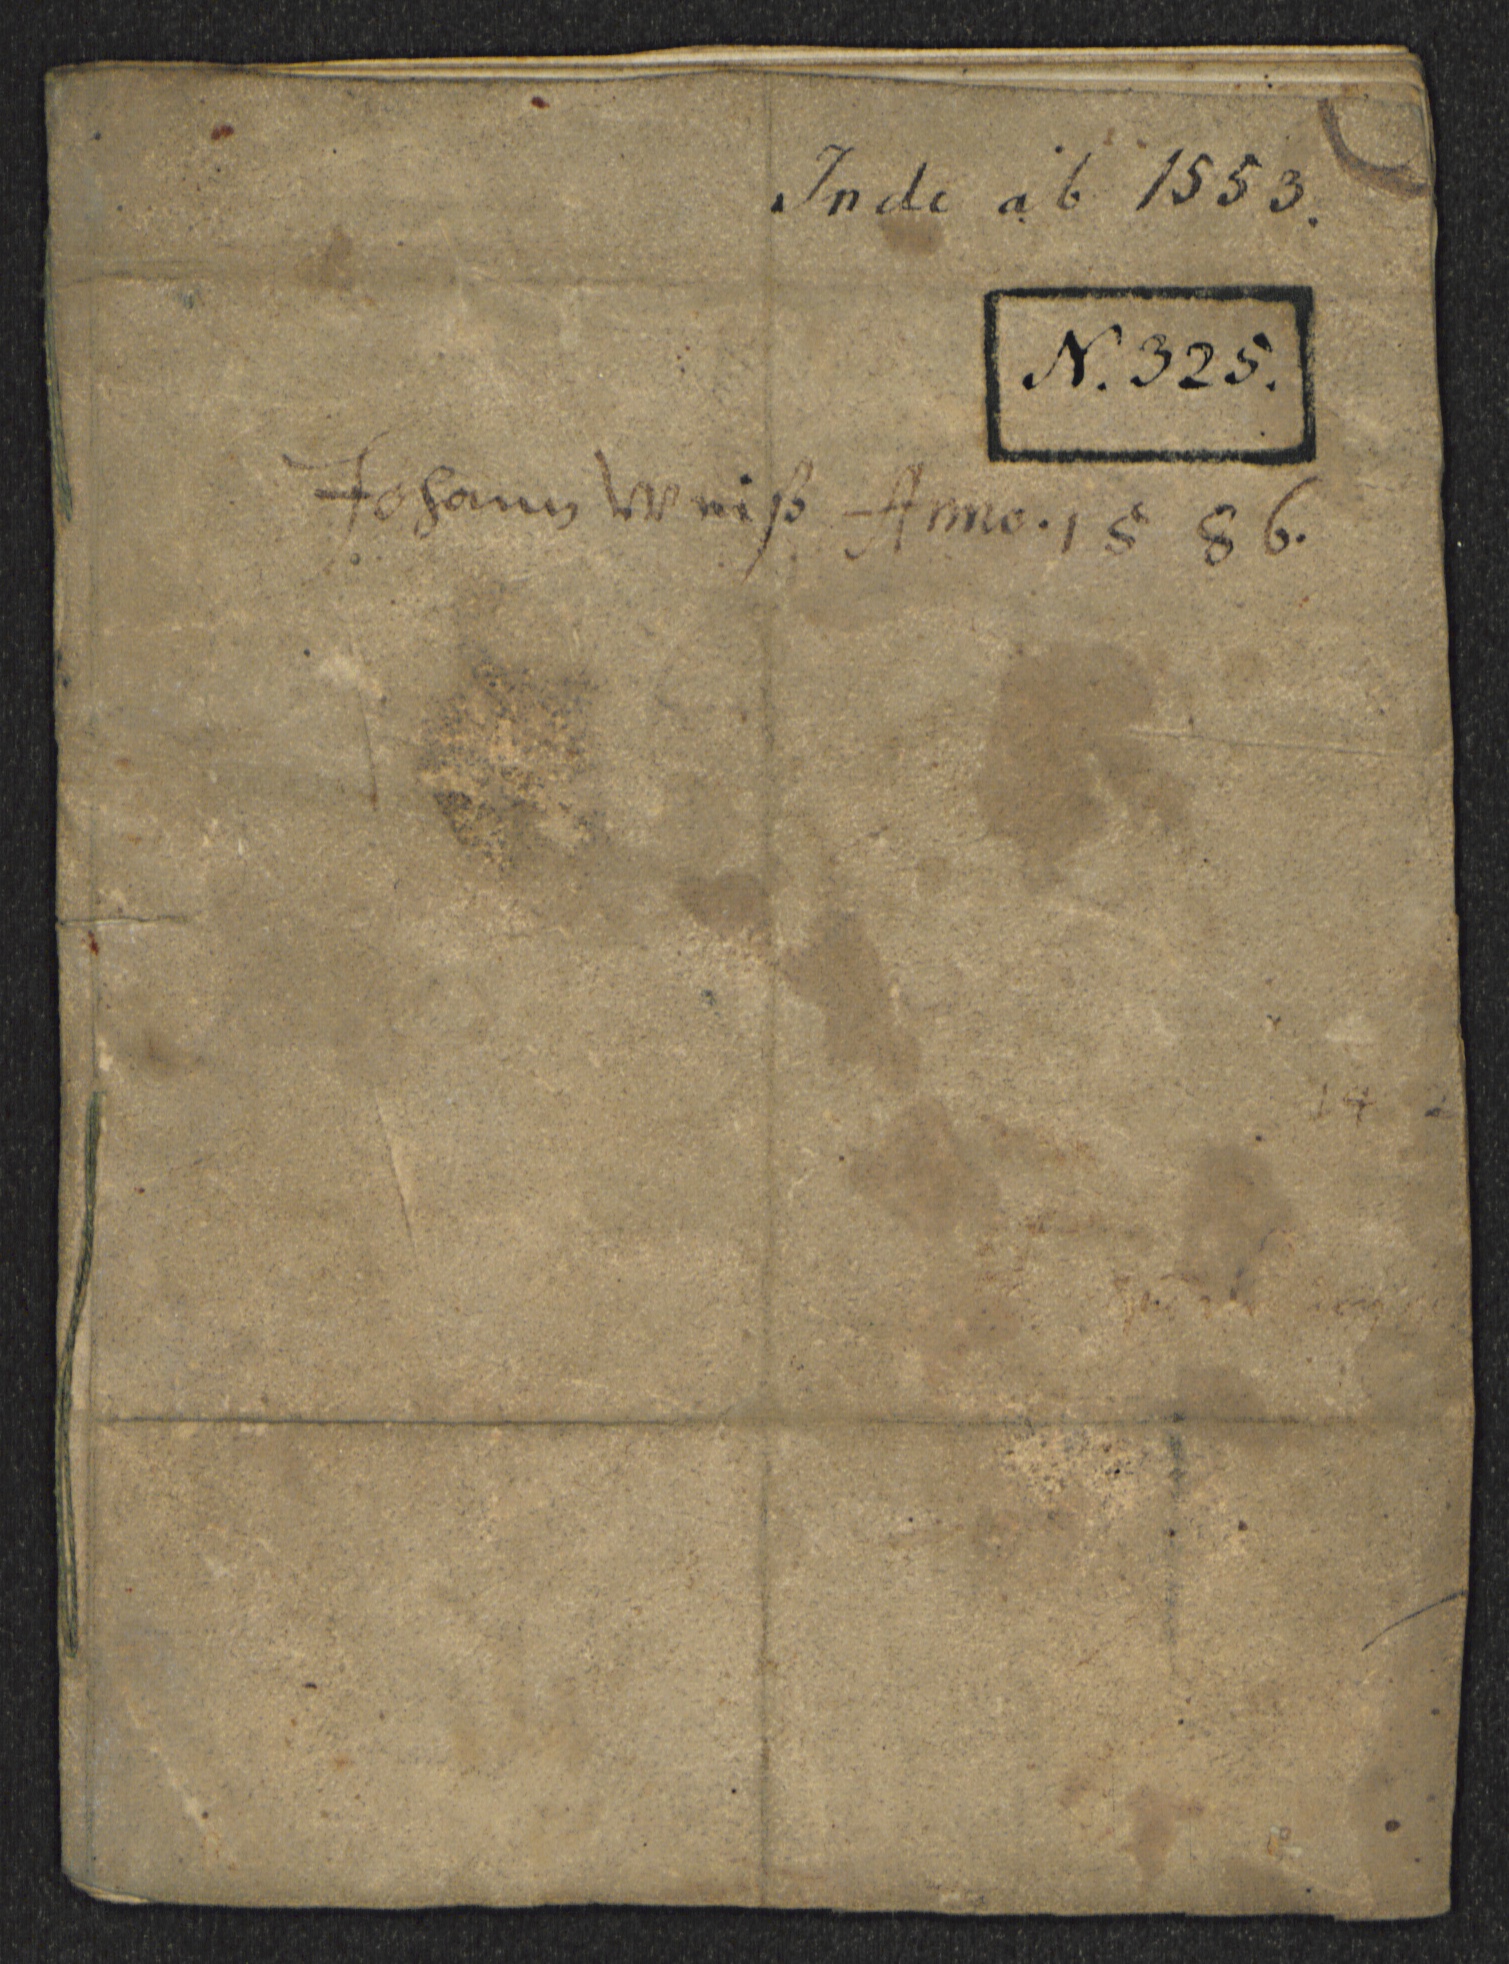 Inde ab 1553.
N. 325.
Johann Weiß Anno. 1586.